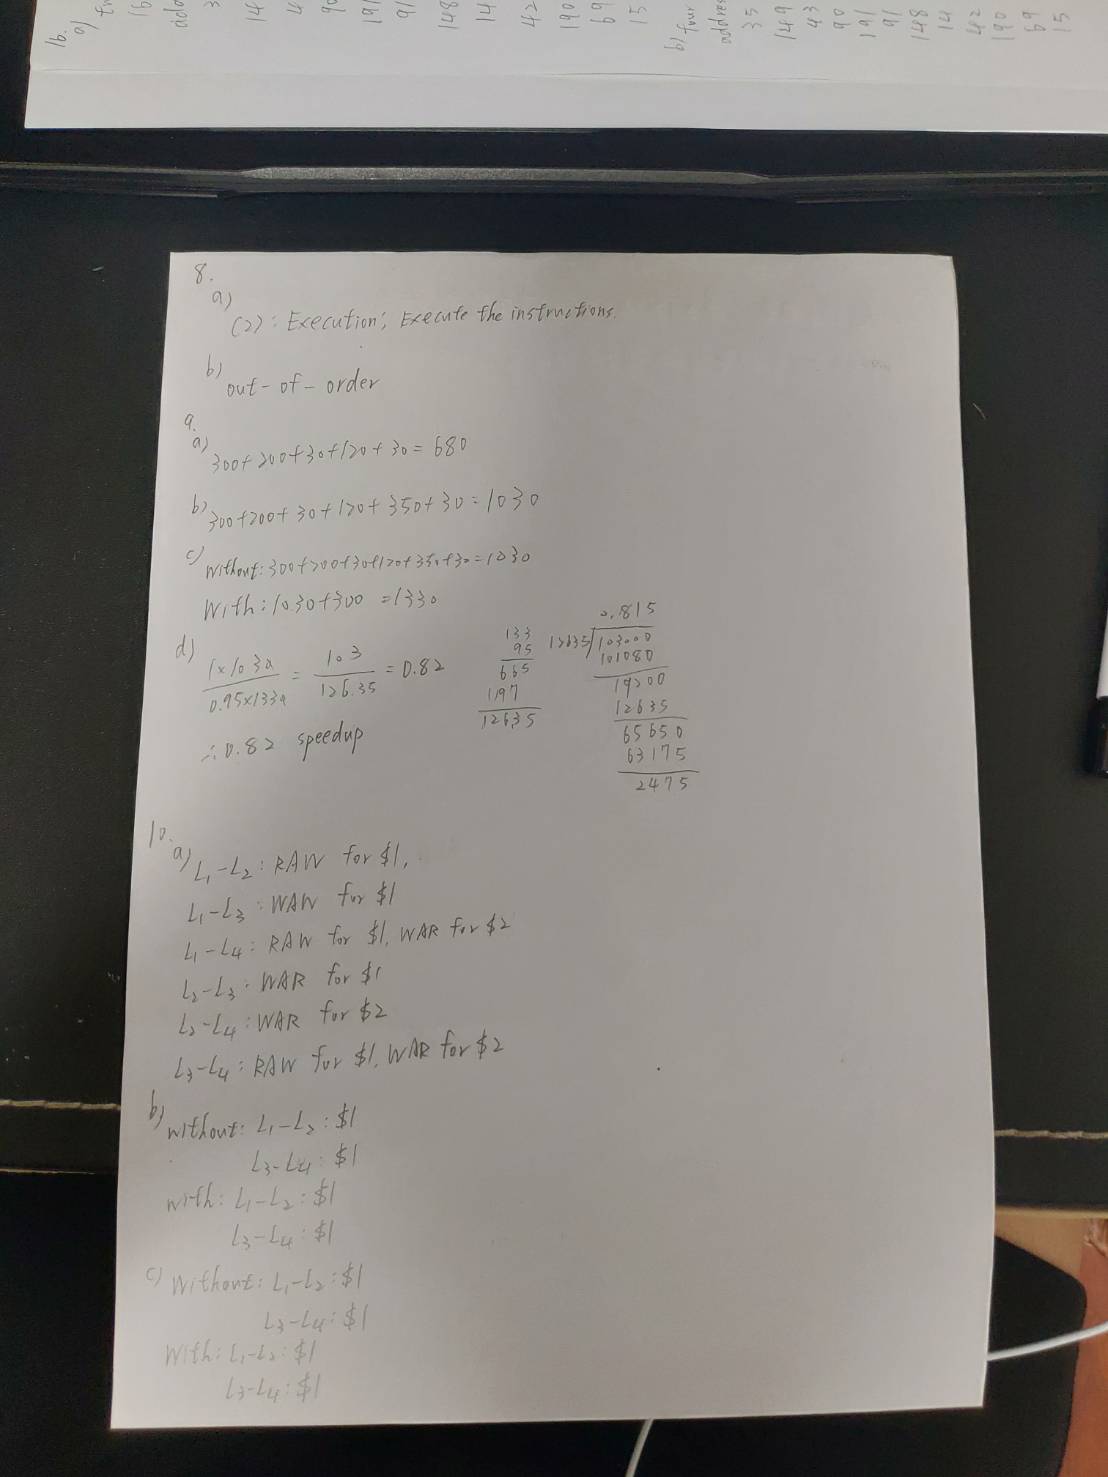 16.
a)
b) four
35
149
43
90
191
91
148
14
42
190
69
15
8.
a)
(2): Execution; Execute the instructions.
b)
out-of-order
9.
a)
300+200+30+120+30=680
b)
300+200+30+120+350+30=1030
c)
Without: 300+200+30+120+350+30=1030
With: 1030+300 =1330
d)
1×1030 / 0.95×1330 = 103 / 126.35 = 0.82
∴ 0.82 speedup
133
95
665
1197
12635
0.815
12635 103000
101080
19200
12635
65650
63175
2475
10.
a) L1-L2: RAW for $1,
L1-L3: WAW for $1
L1-L4: RAW for $1, WAR for $2
L2-L3: WAR for $1
L2-L4: WAR for $2
L3-L4: RAW for $1, WAR for $2
b) without: L1-L2: $1
L3-L4: $1
with: L1-L2: $1
L3-L4: $1
c) Without: L1-L2: $1
L3-L4: $1
With: L1-L2: $1
L3-L4: $1